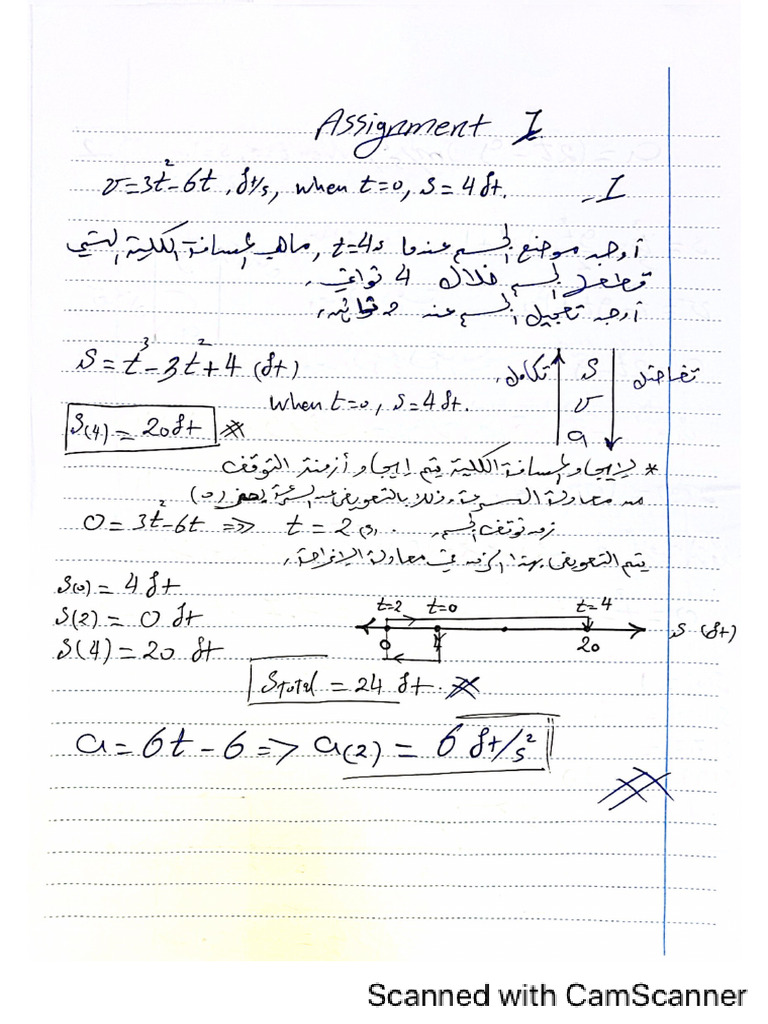 Assignment I
v=3t²-6t, ft/s, when t=0, s=4ft. I-
أوجد موضع الجسم عندما t=4s, ماهي المسافة الكلية التي
قطعها الجسم خلال 4 ثواني.
أوجد تعجيل الجسم عند 2 ثانيه.
S=t³-3t²+4 (ft)
تكامل. S تفاضل
when t=0, s=4ft. v
S(4)=20ft a
* لإيجاد المسافة الكلية يتم إيجاد أزمنة التوقف
من معادلة السرعة وذلك بالتعويض عن السرعة بصفر (0)
0=3t²-6t => t=2(s) . زمن توقف الجسم.
يتم التعويض بهذا الزمن في معادلة الإزاحة.
S(0)=4ft
S(2)=0 ft
S(4)=20 ft
t=2 t=0 t=4
0 4 20 S (ft)
STotal=24 ft.
a=6t-6 => a(2)=6 ft/s²
Scanned with CamScanner